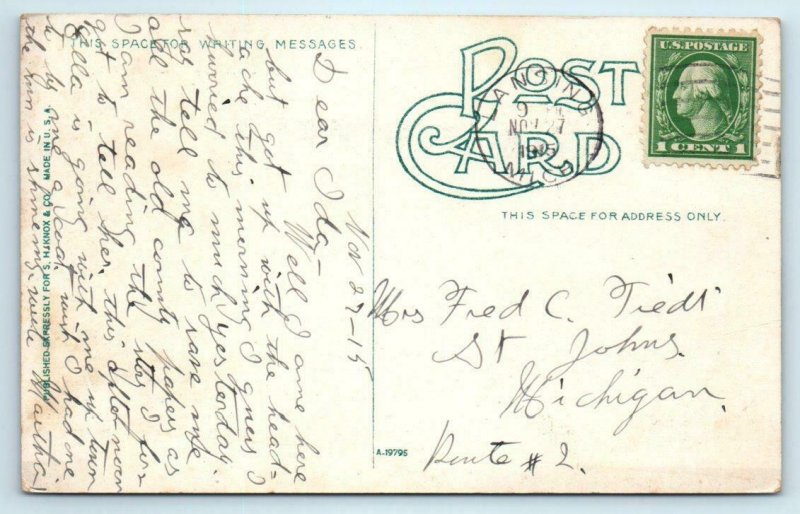 THIS SPACE FOR WRITING MESSAGES.
POST CARD
U.S. POSTAGE
1 CENT 1
LANSING
9
NOV 27
1915
MICH
THIS SPACE FOR ADDRESS ONLY.
Nov 27-15
Dear Ida-
Well I am here
but got up with the head-
ache this morning I guess I
hurried to much yesterday.
say tell me to save me
all the old county papers as
I am reading the story I for
got to tell her. this afternoon
Zella is going with me up town
to buy me a coat, wish I had one
the sun is shineing nice Martha
Mrs Fred C. Tiedt
St Johns.
Michigan.
Route #2.
A-19795
PUBLISHED EXPRESSLY FOR S. H. KNOX & CO. MADE IN U.S.A.